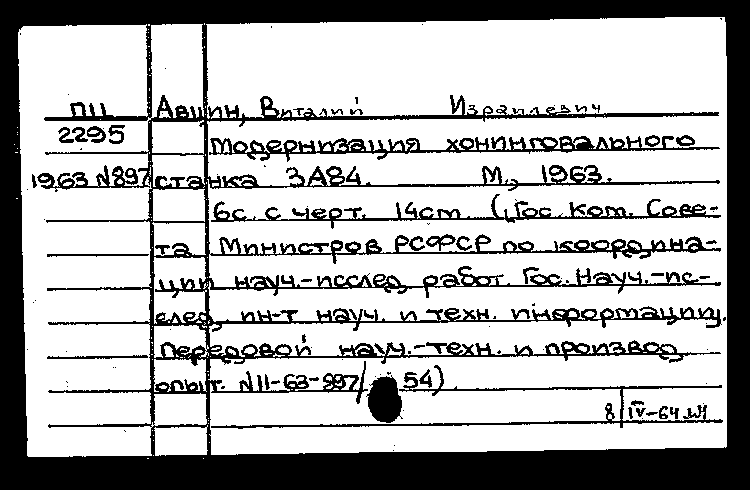 П11 Авцин, Виталий Израилевич
2295 Модернизация хонинговального
1963 N897 станка 3А84. М., 1963.
6с. с черт. 14см. (Гос. Ком. Сове-
та Министров РСФСР по координа-
ции науч.-исслед. работ. Гос. Науч.-ис-
след. ин-т науч. и техн. информации.
Передовой науч.-техн. и производ.
опыт. N11-63-897/ 54)
8 IV-64